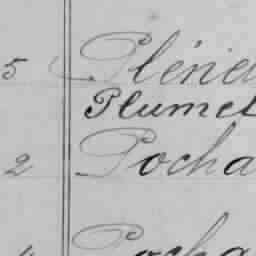 5 Pléne
Plumet
2 Pocha
Pocha